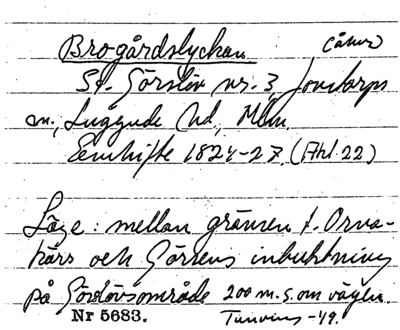 Brogårdslyckan åker
St. Görslöv nr. 3, Jonstorps
sn., Luggude hd, Mlm.
Enskifte 1824-27. (Akt. 22)
Läge: mellan gränsen t. Orva-
kärr och Görslövs inbuktning
på Görslövsområde 200 m. S. om vägen.
Nr 5683. Tuneving -49.